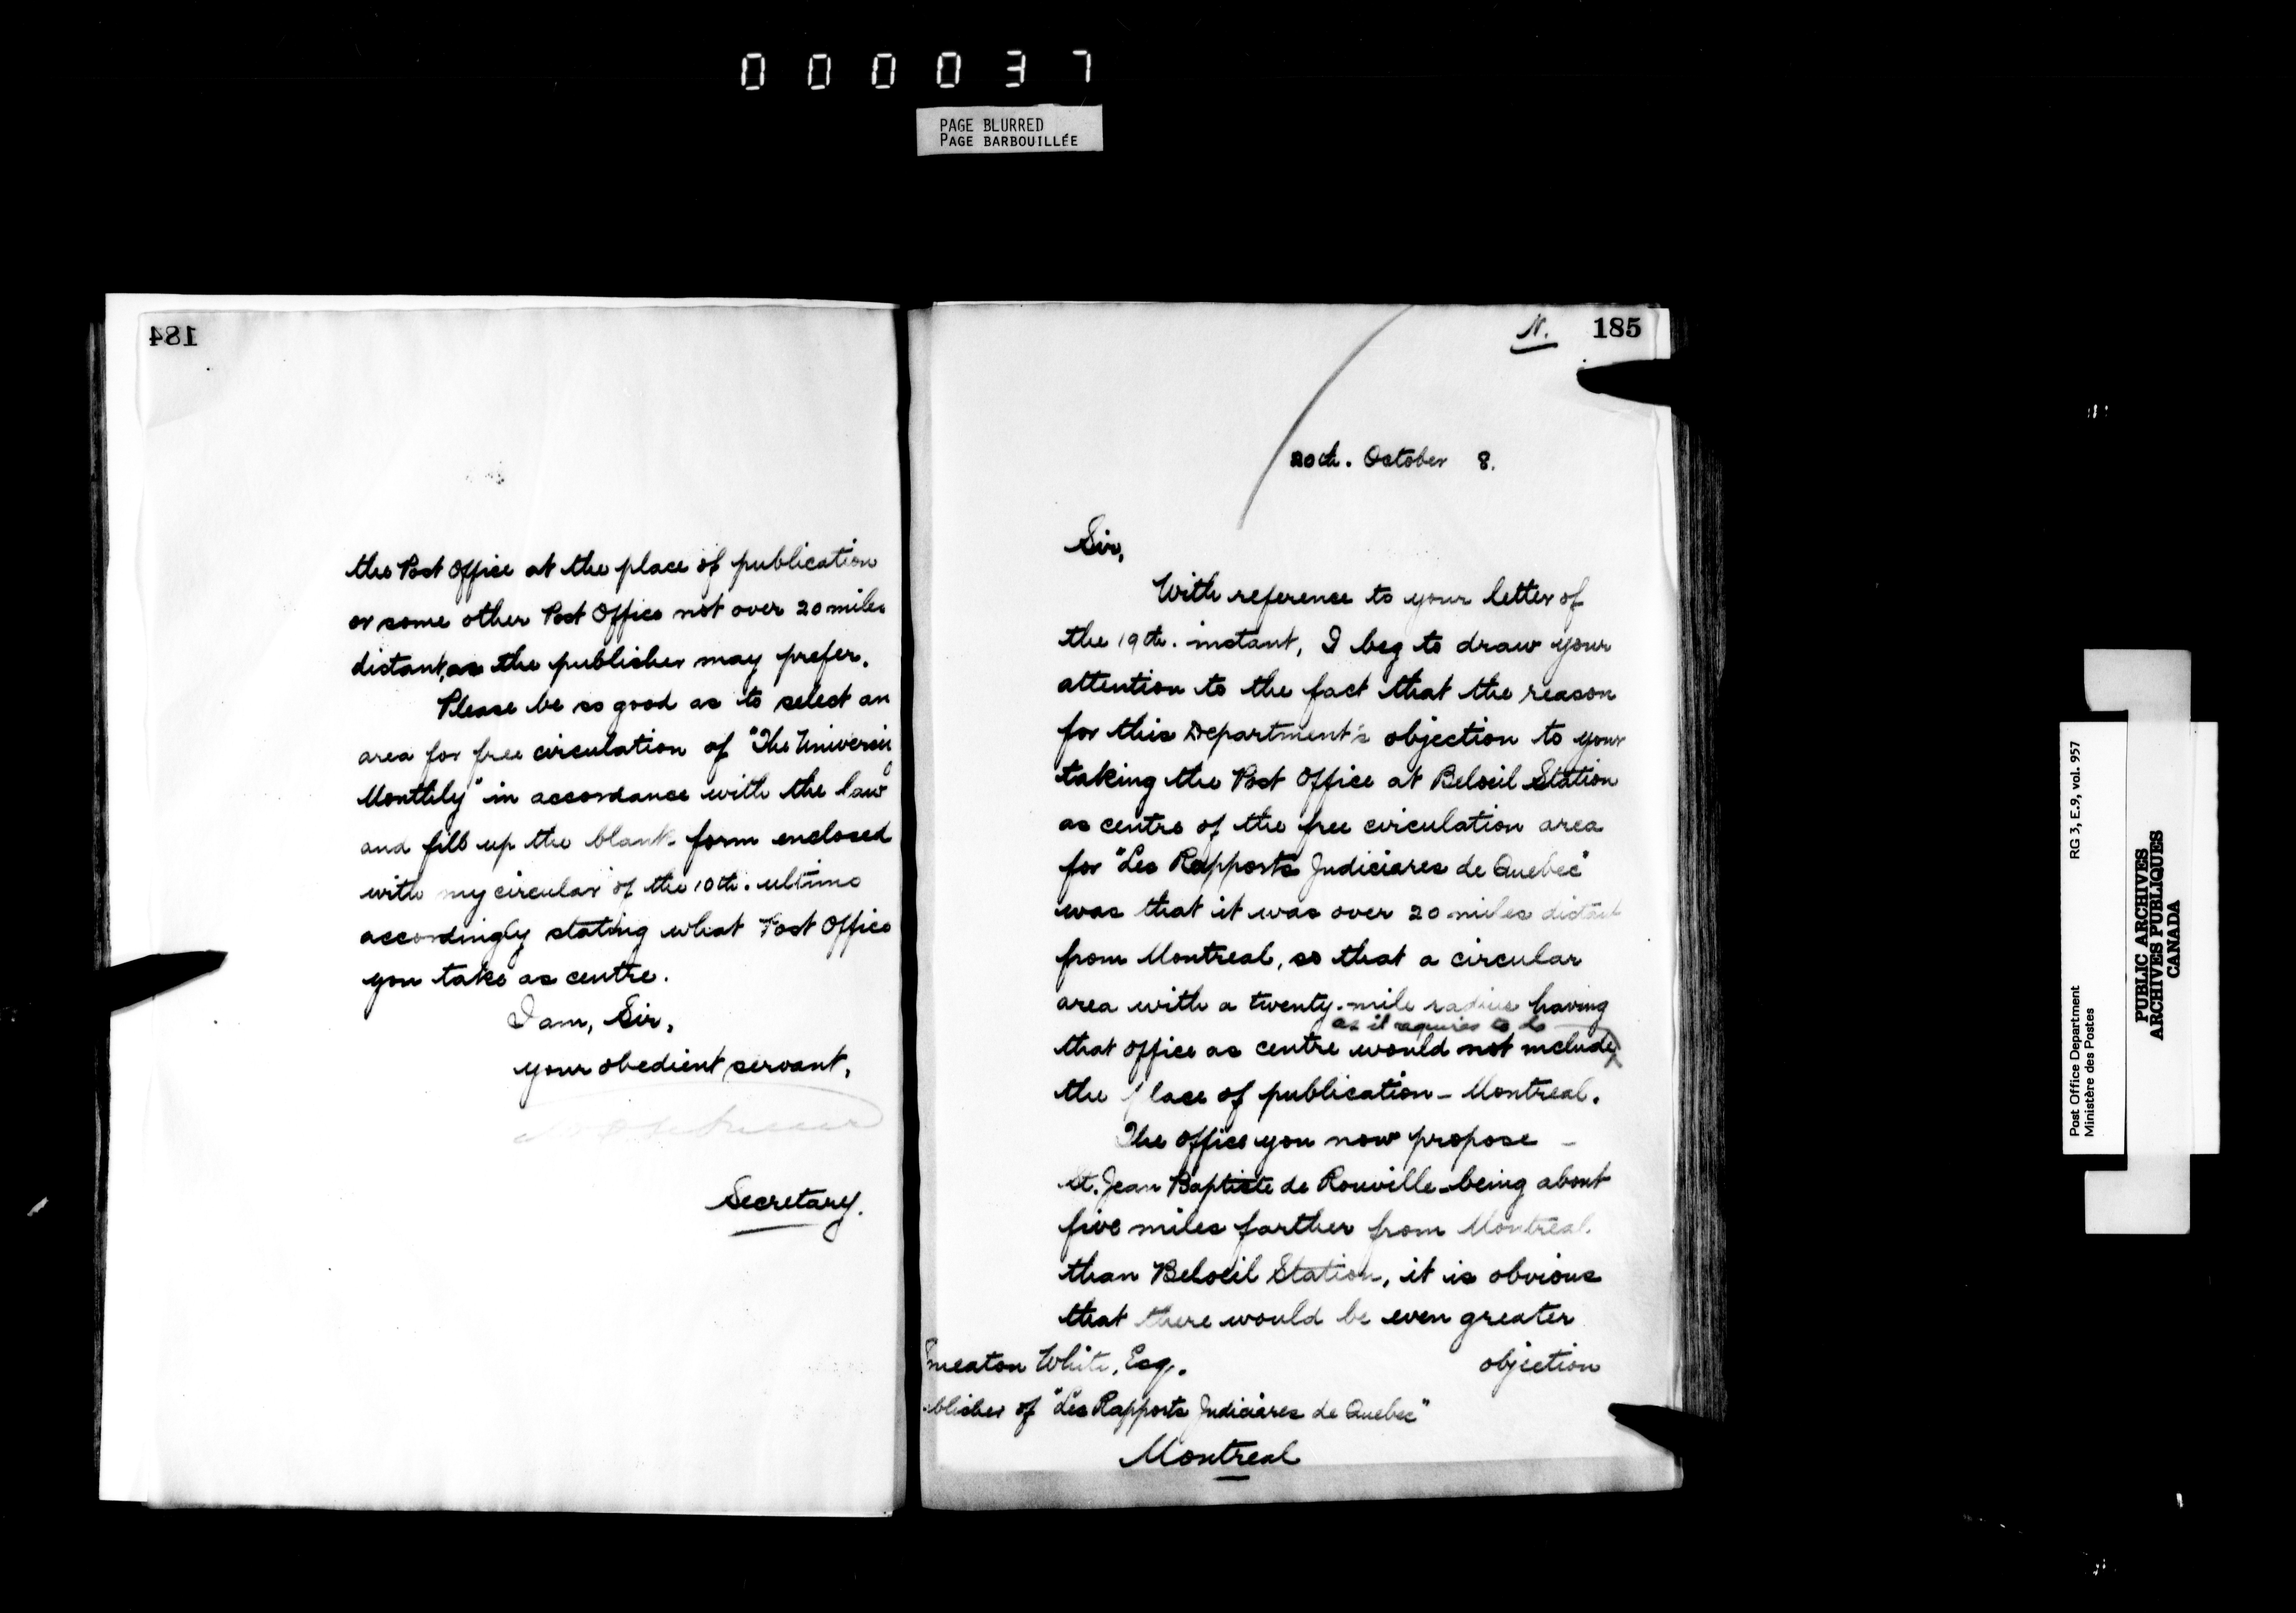 000037
PAGE BLURRED
PAGE BARBOUILLÉE
184
the Post Office at the place of publication
or some other Post Office not over 20 miles
distant, as the publisher may prefer.
Please be so good as to select an
area for free circulation of "The
Monthly" in accordance with the law
and fill up the blank form enclosed
with my circular of the 10th. ultimo
accordingly stating what Post Office
you take as centre.
I am, Sir,
your obedient servant,
Secretary.
N. 185
20th. October 8.
Sir,
With reference to your letter of
the 19th. instant, I beg to draw your
attention to the fact that the reason
for this Department's objection to your
taking the Post Office at Beloeil Station
as centre of the free circulation area
for "Les Rapports Judiciares de Quebec"
was that it was over 20 miles distant
from Montreal, so that a circular
area with a twenty-mile radius having
as it requires to do
that office as centre would not include
the place of publication - Montreal.
The office you now propose -
St. Jean Baptiste de Rouville - being about
five miles farther from Montreal
than Beloeil Station, it is obvious
that there would be even greater
objection
Smeaton White, Esq.
blisher of "Les Rapports Judiciares de Quebec"
Montreal
Post Office Department
Ministère des Postes
RG 3, E.9, vol. 957
PUBLIC ARCHIVES
ARCHIVES PUBLIQUES
CANADA